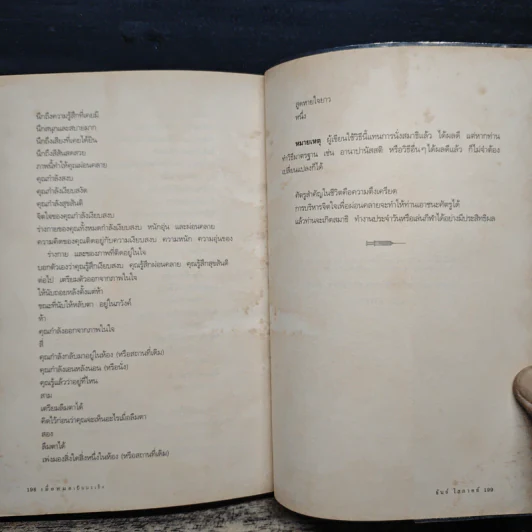 นึกถึงความรู้สึกที่เคยมี
นึกสนุกและสบายมาก
นึกถึงเสียงที่เคยได้ยิน
นึกถึงสีสันสดสวย
ภาพนี้ทำให้คุณผ่อนคลาย
คุณกำลังสงบ
คุณกำลังเงียบสงัด
คุณกำลังสุขสันติ
จิตใจของคุณกำลังเงียบสงบ
ร่างกายของคุณทั้งหมดกำลังเงียบสงบ หนักอุ่น และผ่อนคลาย
ความคิดของคุณติดอยู่กับความเงียบสงบ ความหนัก ความอุ่นของ
ร่างกาย และของภาพที่ติดอยู่ในใจ
บอกตัวเองว่าคุณรู้สึกเงียบสงบ คุณรู้สึกผ่อนคลาย คุณรู้สุขสันติ
ต่อไป เตรียมตัวออกจากภาพในใจ
ให้นับถอยหลังตั้งแต่ห้า
ขณะที่นับให้หลับตา อยู่ในภวังค์
ห้า
คุณกำลังออกจากภาพในใจ
สี่
คุณกำลังกลับมาอยู่ในห้อง (หรือสถานที่เดิม)
คุณกำลังนอนหลังนอน (หรือนั่ง)
คุณรู้แล้วว่าอยู่ที่ไหน
สาม
เตรียมลืมตาได้
คิดไว้ก่อนว่าคุณจะเห็นอะไรเมื่อลืมตา
สอง
ลืมตาได้
เพ่งมองสิ่งใดสิ่งหนึ่งในห้อง (หรือสถานที่เดิม)
198
สูดหายใจยาว
หนึ่ง
หมายเหตุ ผู้เขียนใช้วิธีนี้แทนการนั่งสมาธิแล้ว ได้ผลดี แต่หากท่าน
ทำวิธีมาตรฐาน เช่น อานาปานัสสติ หรือวิธีอื่นๆ ได้ผลดีแล้ว ก็ไม่จำต้อง
เปลี่ยนแปลงก็ได้
ศัตรูสำคัญในชีวิตคือความตึงเครียด
การบริหารจิตใจเพื่อผ่อนคลายจะทำให้ท่านเอาชนะศัตรูได้
แล้วท่านจะเกิดสมาธิ ทำงานประจำวันหรือเล่นกีฬาได้อย่างมีประสิทธิผล
199